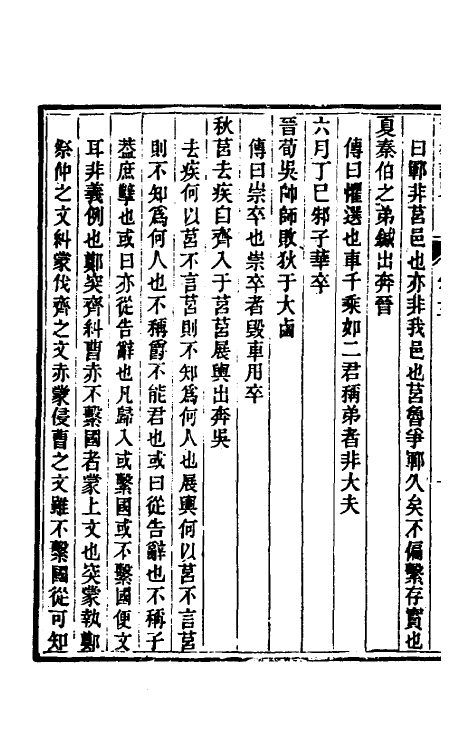 曰鄆非莒邑也亦非我邑也莒魯爭鄆久矣不偏繫存實也
夏秦伯之弟鍼出奔晉
傳曰懼選也車千乘如二君稱弟者非大夫
六月丁巳邾子華卒
晉荀吳帥師敗狄于大鹵
傳曰崇卒也崇卒者毀車用卒
秋莒去疾自齊入于莒莒展輿出奔吳
去疾何以莒不言莒則不知爲何人也展輿何以莒不言莒
則不知爲何人也不稱爵不能君也或曰從告辭也不稱子
葢庶孽也或曰亦從告辭也凡歸入或繫國或不繫國便文
耳非義例也鄭突齊糾曹赤不繫國者蒙上文也突蒙執鄭
祭仲之文糾蒙伐齊之文赤蒙侵曹之文雖不繫國從可知